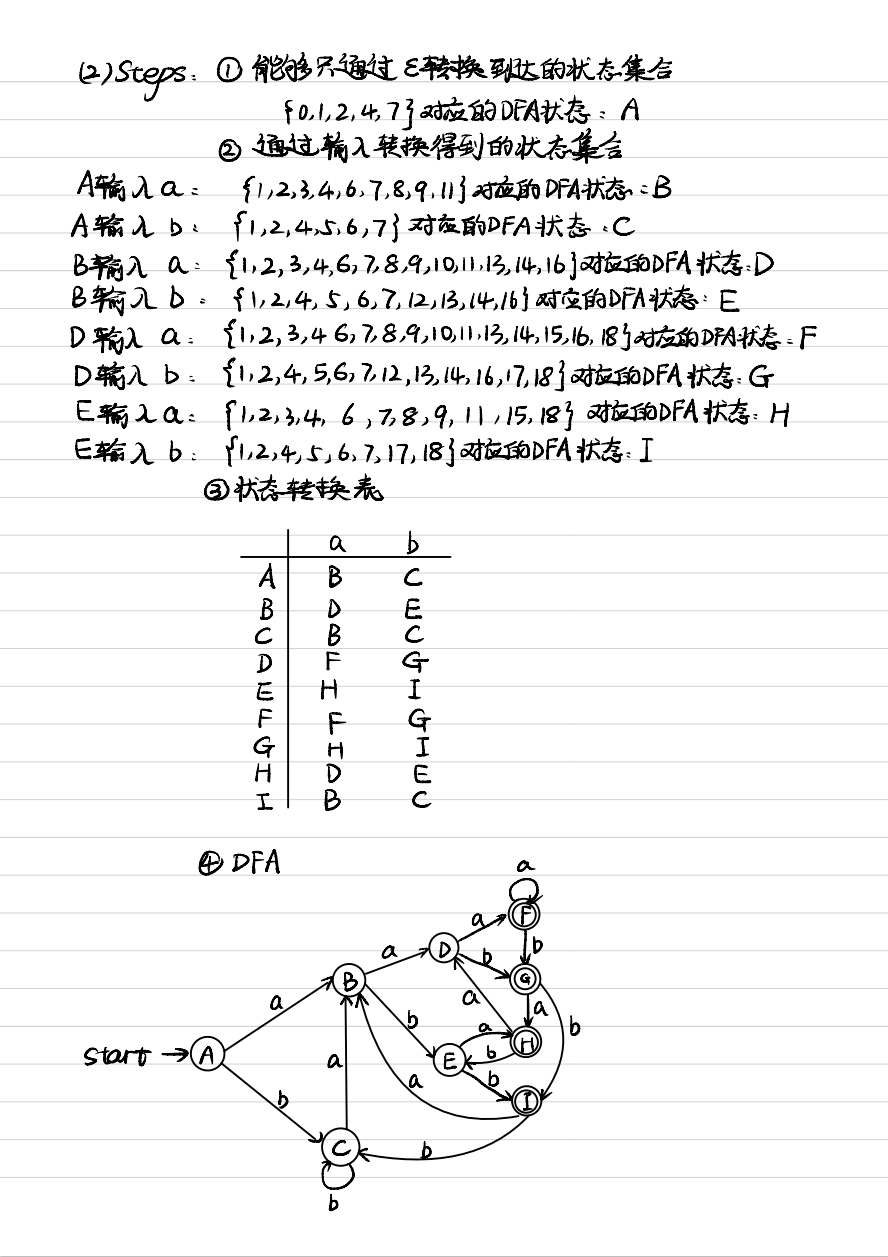 (2) Steps: ① 能够只通过 ε转换到达的状态集合
{0,1,2,4,7}对应的DFA状态: A
② 通过输入转换得到的状态集合
A输入a: {1,2,3,4,6,7,8,9,11}对应的DFA状态:B
A输入 b: {1,2,4,5,6,7}对应的DFA状态:C
B输入 a: {1,2,3,4,6,7,8,9,10,11,13,14,16}对应的DFA状态:D
B输入 b: {1,2,4,5,6,7,12,13,14,16}对应的DFA状态: E
D输入 a: {1,2,3,4 6,7,8,9,10,11,13,14,15,16,18}对应的DFA状态: F
D输入 b: {1,2,4,5,6,7,12,13,14,16,17,18}对应的DFA状态:G
E输入a: {1,2,3,4,6,7,8,9,11,15,18}对应的DFA状态: H
E输入 b: {1,2,4,5,6,7,17,18}对应的DFA状态: I
③状态转换表
a b
A B C
B D E
C B C
D F G
E H I
F F G
G H I
H D E
I B C
④ DFA
a
F
a
b
D
a
b
G
B
a
a
a
b
b
a
H
start
A
E
b
a
b
a
I
b
C
b
b